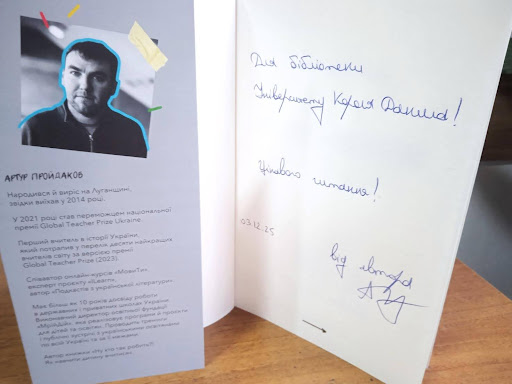 АРТУР ПРОЙДАКОВ
Народився й виріс на Луганщині,
звідки виїхав у 2014 році.
У 2021 році став переможцем національної
премії Global Teacher Prize Ukraine.
Перший вчитель в історії України,
який потрапив у перелік десяти найкращих
вчителів світу за версією премії
Global Teacher Prize (2023).
Співавтор онлайн-курсів «МовиТи»,
експерт проєкту «Єквіз»,
автор «Подкастів з української літератури».
Має більш як 10 років досвіду роботи
в державних і приватних школах України.
Виконавчий директор освітньої фундації
«МрійДій», яка реалізовує програми й проєкти
для дітей та освітян. Проводить тренінги
і публічні зустрічі з українськими освітянами
по всій Україні та за її межами.
Автор книжки «Ну хто так робить?!
Як навчити дитину вчитися».
Для бібліотеки
Університету Короля Данила!
Цікавого читання!
03.12.25
від автора